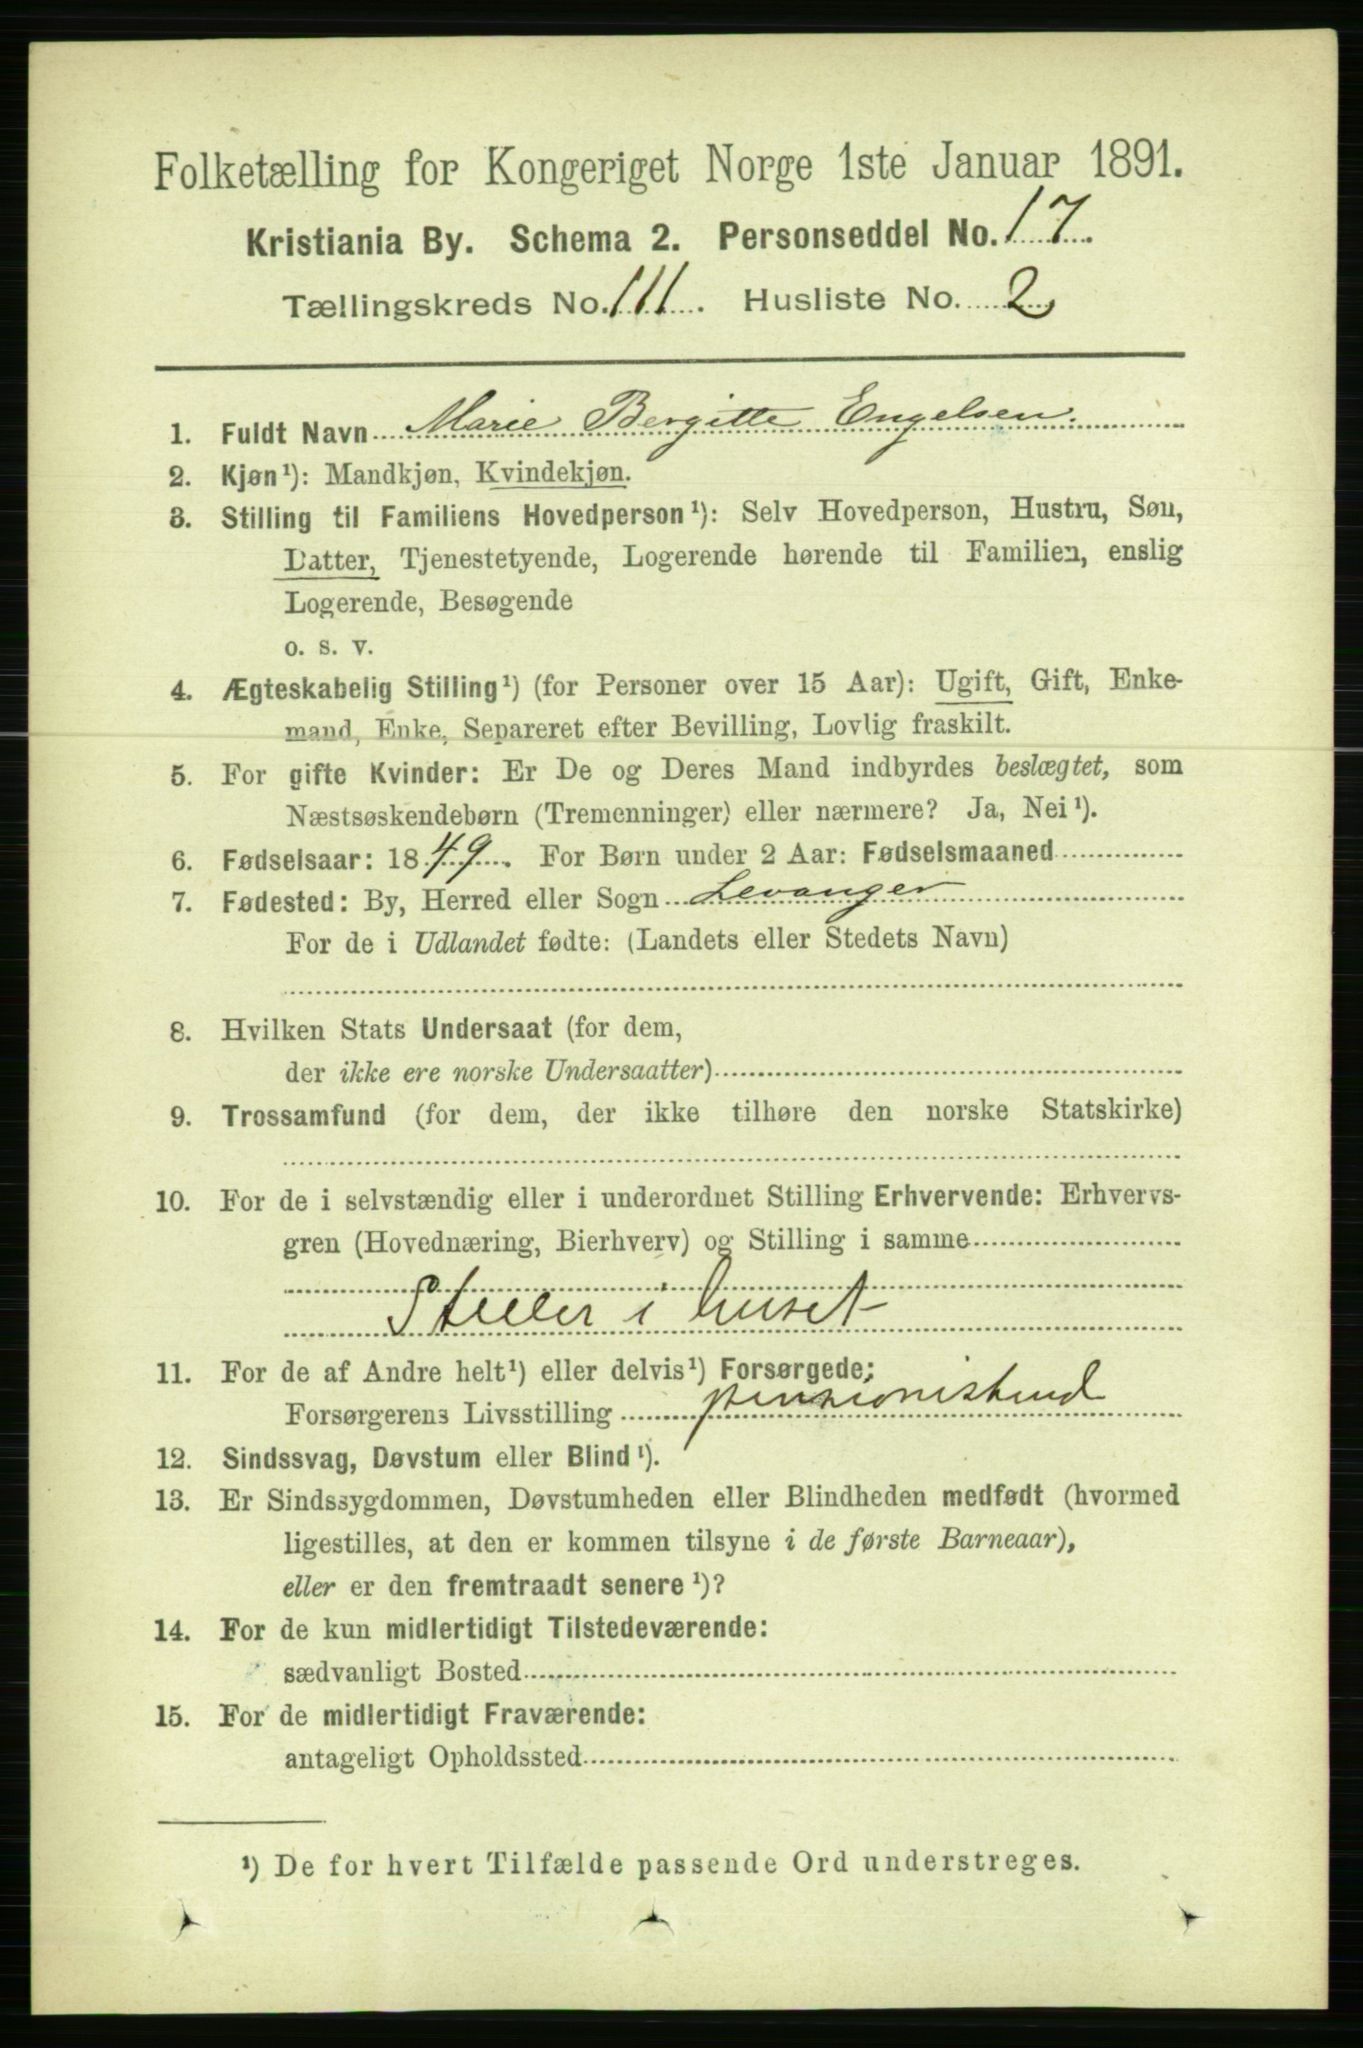 Folketælling for Kongeriget Norge 1ste Januar 1891.
Kristiania By. Schema 2. Personseddel No. 17.
Tællingskreds No. 111. Husliste No. 2
1. Fuldt Navn Marie Bergitte Engelsen.
2. Kjøn¹): Mandkjøn, Kvindekjøn.
3. Stilling til Familiens Hovedperson¹): Selv Hovedperson, Hustru, Søn,
Datter, Tjenestetyende, Logerende hørende til Familien, enslig
Logerende, Besøgende
o. s. v.
4. Ægteskabelig Stilling¹) (for Personer over 15 Aar): Ugift, Gift, Enke-
mand, Enke, Separeret efter Bevilling, Lovlig fraskilt.
5. For gifte Kvinder: Er De og Deres Mand indbyrdes beslægtet, som
Næstsøskendebørn (Tremenninger) eller nærmere? Ja, Nei¹).
6. Fødselsaar: 1849. For Børn under 2 Aar: Fødselsmaaned
7. Fødested: By, Herred eller Sogn Levanger
For de i Udlandet fødte: (Landets eller Stedets Navn)
8. Hvilken Stats Undersaat (for dem,
der ikke ere norske Undersaatter)
9. Trossamfund (for dem, der ikke tilhøre den norske Statskirke)
10. For de i selvstændig eller i underordnet Stilling Erhvervende: Erhvervs-
gren (Hovednæring, Bierhverv) og Stilling i samme
Steller i huset
11. For de af Andre helt¹) eller delvis¹) Forsørgede;
Forsørgerens Livsstilling
12. Sindssvag, Døvstum eller Blind¹).
13. Er Sindssygdommen, Døvstumheden eller Blindheden medfødt (hvormed
ligestilles, at den er kommen tilsyne i de første Barneaar),
eller er den fremtraadt senere¹)?
14. For de kun midlertidigt Tilstedeværende:
sædvanligt Bosted
15. For de midlertidigt Fraværende:
antageligt Opholdssted
¹) De for hvert Tilfælde passende Ord understreges.